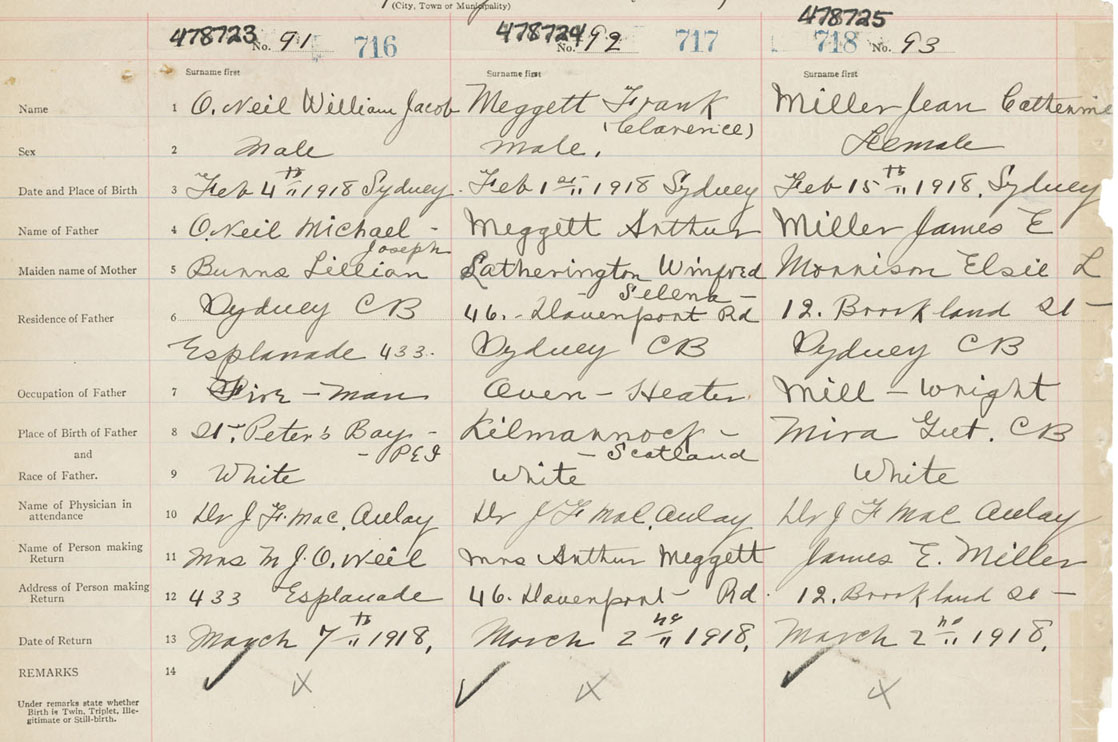 (City, Town or Municipality)
478723 No. 91 716 478724 No. 92 717 478725 718 No. 93
Surname first Surname first Surname first
Name 1 O. Neil William Jacob Meggett Frank Miller Jean Catherine
(Clarence)
Sex 2 Male Male. Female
Date and Place of Birth 3 Feb 4th 1918 Sydney Feb 1st 1918 Sydney Feb 15th 1918. Sydney
Name of Father 4 O. Neil Michael - Meggett Arthur Miller James E
Joseph
Maiden name of Mother 5 Burns Lillian Latherington Winfred Morrison Elsie L
- Selena -
Residence of Father 6 Sydney CB 46. - Davenport Rd 12. Brookland St -
Esplanade 433. Sydney CB Sydney CB
Occupation of Father 7 Fire - man Oven - Heater Mill - wright
Place of Birth of Father 8 St. Peter's Bay - Kilmannock - Mira Gut. CB
and - PEI - Scotland
Race of Father. 9 White White White
Name of Physician in
attendance 10 Dr J F. Mac. Aulay Dr J F Mac. Aulay Dr J F Mac Aulay
Name of Person making
Return 11 Mrs M J. O. Neil Mrs Arthur Meggett James E. Miller
Address of Person making
Return 12 433 Esplanade 46. Davenport Rd. 12. Brookland St -
Date of Return 13 March 7th 1918. March 2nd 1918. March 2nd 1918.
REMARKS 14 ✓ x ✓ x ✓ x
Under remarks state whether
Birth is Twin, Triplet, Ille-
gitimate or Still-birth.